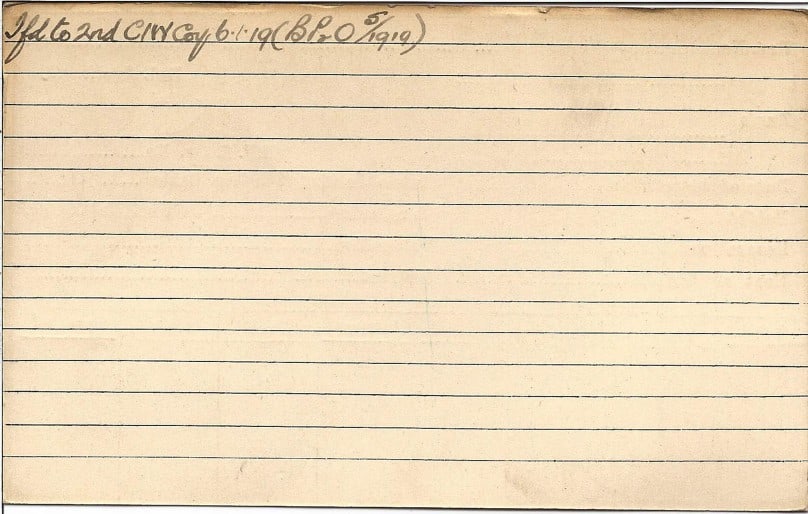 Tfd to 2nd CIW Coy 6.1.19 (B Pt O 5/1919)